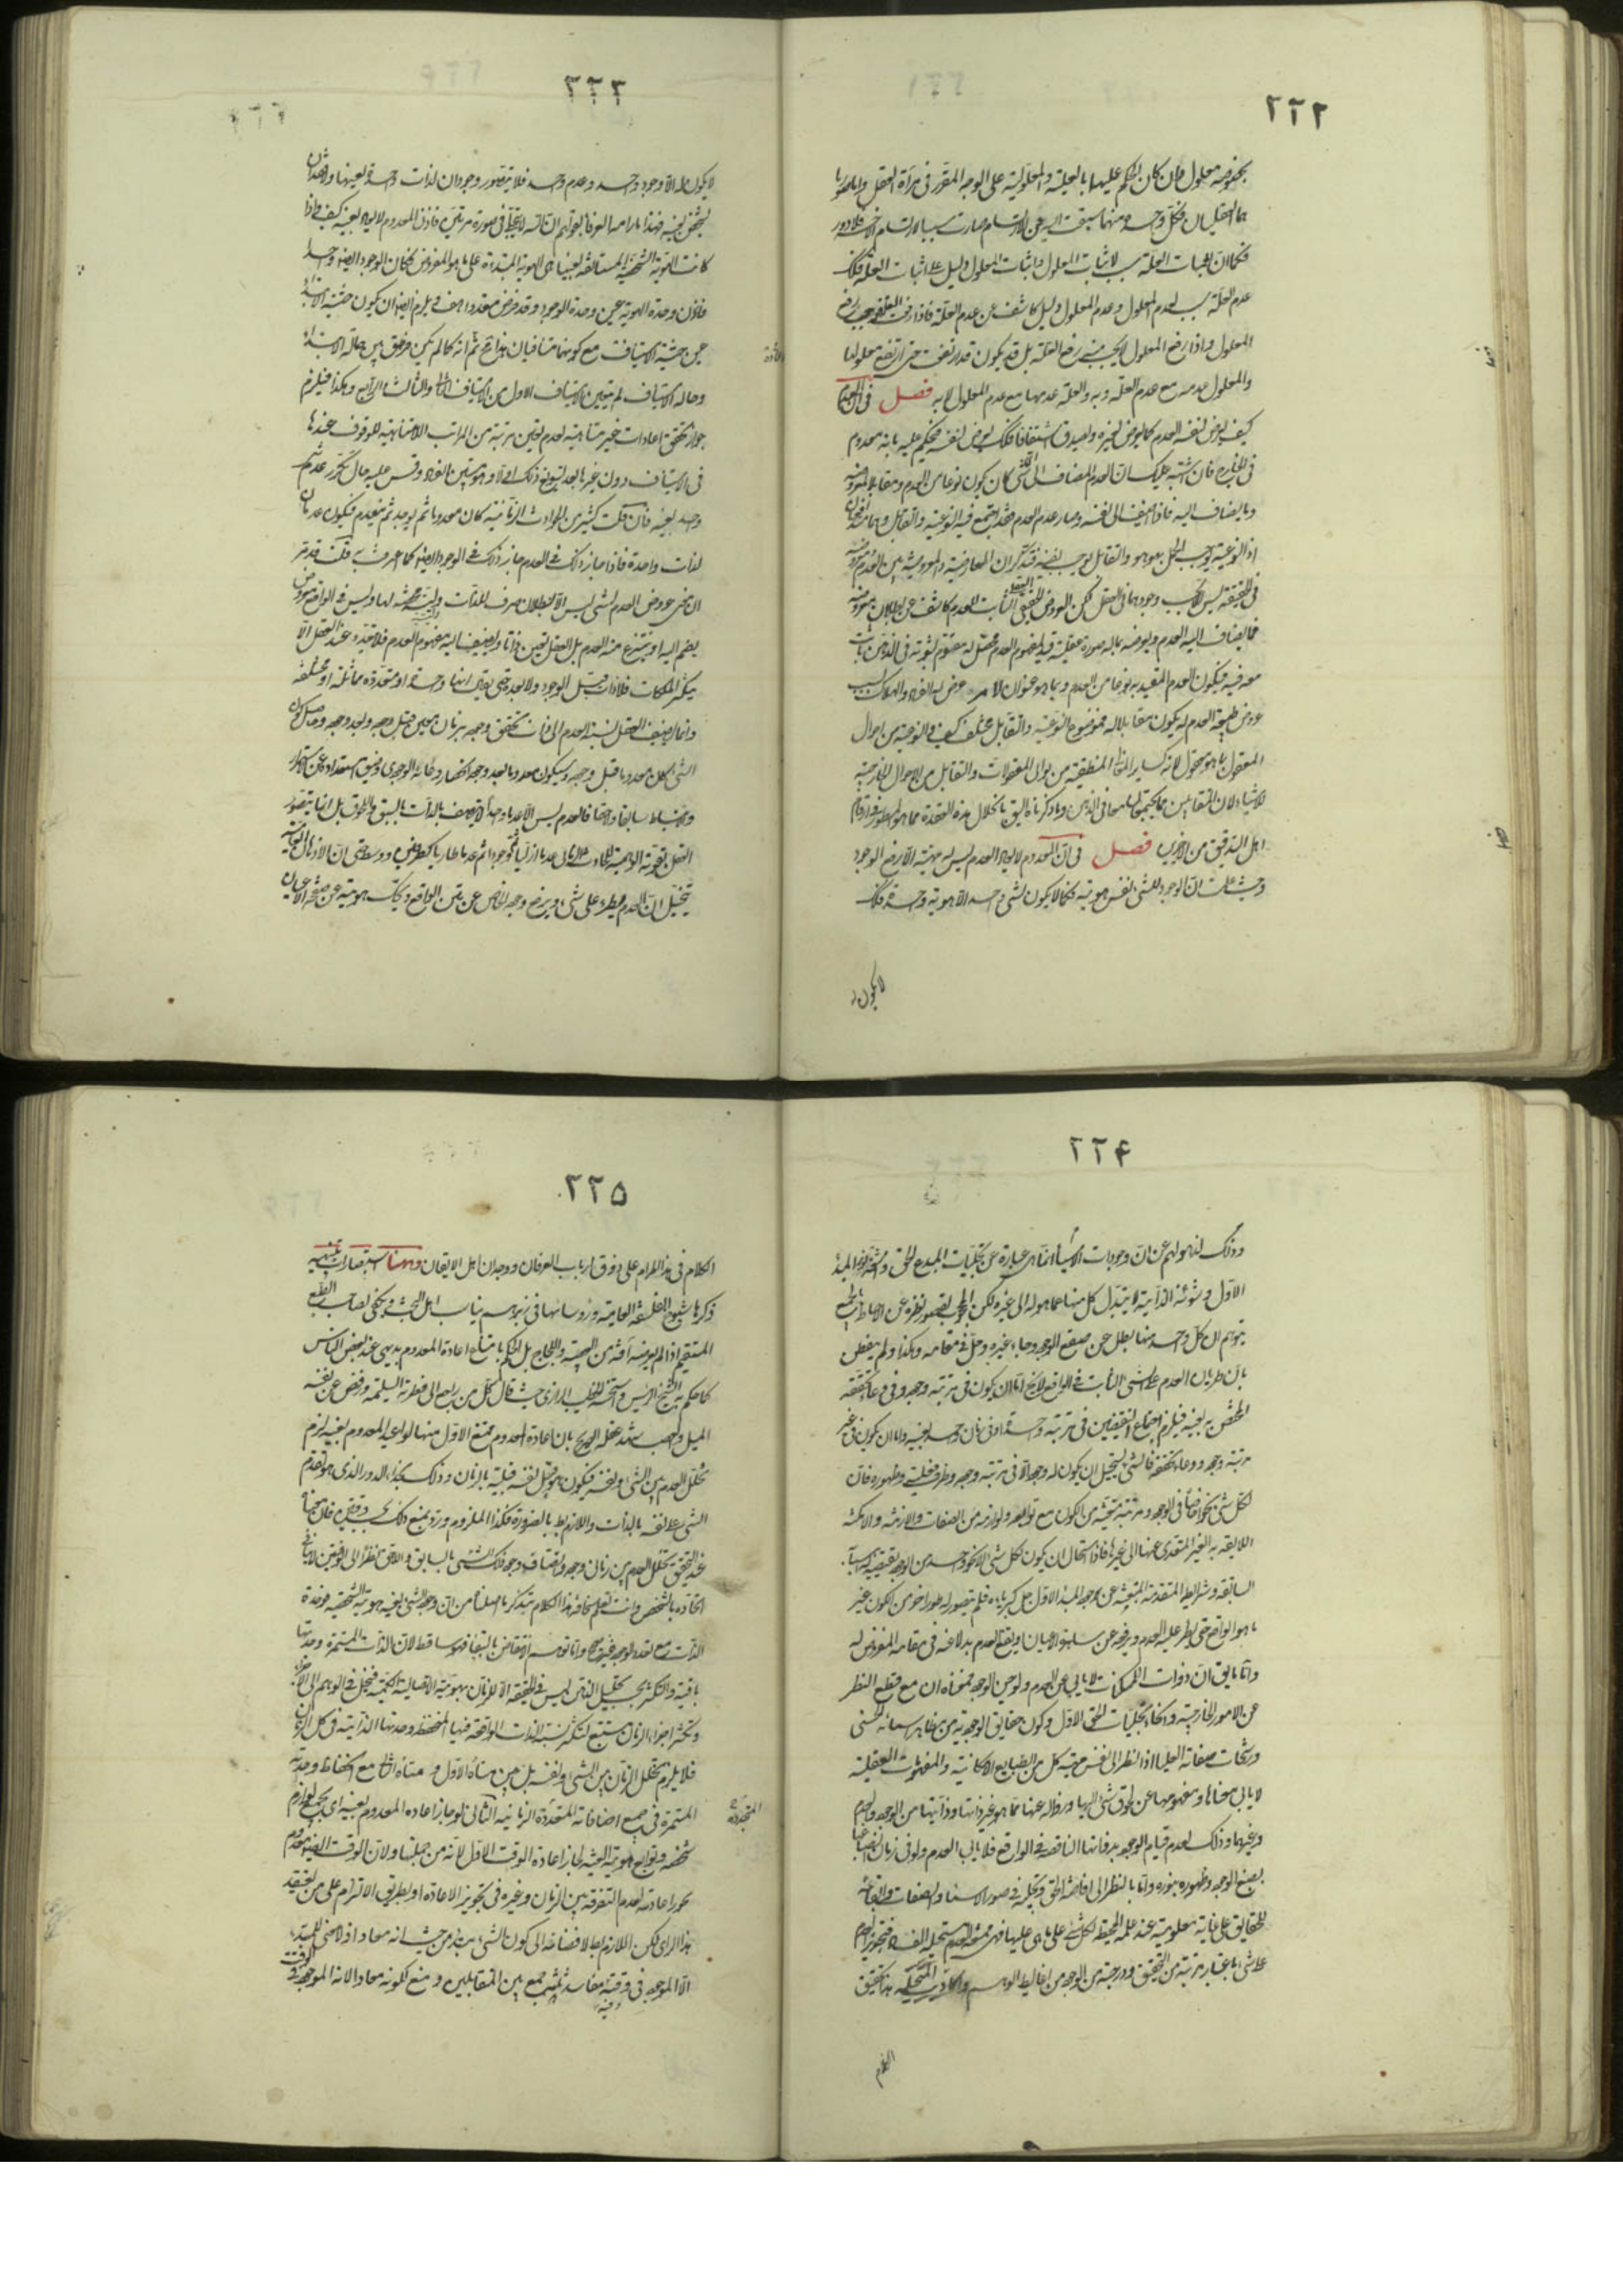 ٢٢٢
بخصوصه معلول وان كان الحكم عليهما بالعلية والمعلولية على الوجه المقرر فى مرآة العقل
فكل واحدة منهما سبقت الى الارتسام صارت سببا لارتسام الاخرى فلا دور
فكما ان اثبات العلة سبب لاثبات المعلول واثبات المعلول دليل على اثبات العلة فكذلك
عدم العلة سبب لعدم المعلول وعدم المعلول دليل كاشف عن عدم العلة فاذا رفعت العلة وجب رفع
المعلول واذا رفع المعلول لا يجب منه رفع العلة بل قد يكون قد ارتفعت حتى ارتفع معلولها
والمعلول عدمه مع عدم العلة وبه والعلة عدمها مع عدم المعلول لا به فصل فى ان العدم
كيف يعرض لنفسه العدم كما يعرض لغيره ويصدق اشتقاقا فكذلك يعرض لنفسه فيحكم عليه بانه معدوم
فى الخارج فان اشتبه عليك ان العدم المضاف الى اى شى كان يكون نوعا من العدم ومقابلا لمعروضه
وما يضاف اليه فاذا اضيف الى نفسه وصار عدم العدم فقد اجتمع فيه النوعية والتقابل وهما متدافعان
اذ النوعية توجب الحمل بهو هو والتقابل يوجب نفيه فتذكر ان المعارضية والمعروضية بين العدم ومعروضه
فى الحقيقة ليس الا بحسب وجودهما فى العقل لكن العروض الحقيقى الثابت للعدم كاشف عن بطلان معروضه
فما يضاف اليه العدم ويعرضه ماله صورة عقلية قيد لمفهوم العدم محصل له مقوم لثبوته فى الذهن ثابت
معه فيه فيكون العدم المقيد به نوعا من العدم وبما هو عنوان لامر عرض له الفساد والهلاك بسبب
عروض طبيعة العدم له يكون مقابلا له فموضوع النوعية والتقابل مختلف كيف والنوعية من احوال
المعقول بما هو معقول لانه كسائر المعانى المنطقية من ثوانى المعقولات والتقابل من الاحوال الخارجية
للاشياء لان المتقابلين مما يجتمعان فى الذهن وما ذكرناه اليق بانحلال هذه العقدة مما هو المسطور فى ارقام
اهل التدقيق من الاخرين فصل فى ان المعدوم لا يعاد العدم ليس له مهية الا رفع الوجود
وحيث علمت ان الوجود للشى نفس هويته فكما لا يكون لشى واحد الا هوية واحدة فكذلك
لا يكون
٢٢٣
لا يكون له الا وجود واحد وعدم واحد فلا يتصور وجودان لذات واحدة بعينها ولا فقدان
لشخص بعينه فهذا ما رامه العرفاء بقولهم ان الله لا يتجلى فى صورة مرتين فاذن المعدوم لا يعاد بعينه كيف واذا
كانت الهوية الشخصية المستانفة بعينها هى الهوية المبتداة على ما هو المفروض فكان الوجود ايضا واحدا
فاذن وحدة الهوية عين وحدة الوجود وقد فرض متعددا هف ويلزم ايضا ان يكون حيثية الابتداء
عين حيثية الاستيناف مع كونهما متنافيان هذا ثم انه كما لم يكن فرق بين حالة الابتداء
وحالة الاستيناف لم يتعين الاستيناف الاول من الاستيناف الثانى والثالث والرابع وهكذا فيلزم
جواز تحقق اعادات غير متناهية لعدم تعين مرتبة من المراتب اللامتناهية للوقوف عندها
فى الاستيناف دون غيرها
وحيد بعينه فان قلت كثير من الحوادث الزمانية كان معدوما ثم يوجد ثم ينعدم فيكون عدمان
لذات واحدة فاذا جاز ذلك فى العدم جاز ذلك فى الوجود ايضا كما اعترفت به قلت قد مر
ان معنى عروض العدم لشى ليس الا بطلان صرف للذات وليسية محضة لها وليس فى الواقع معروض
يضم اليه او ينتزع منه العدم بل العقل يعين ذاتا ويضيف اليه مفهوم العدم فلا تعدد عند العقل الا
بتكثر الملكات فلا ذات قبل الوجود ولا بعده حتى يقال انها واحدة او متعددة متماثلة او مختلفة
وانما يضيف العقل نسبة العدم الى ذات تختص وجوده بزمان معين قبل وجوده وبعد وجوده
الشى لكل معدوما قبل وجوده وسيكون معدوما بعد وجوده انحصار وعائه الوجودى وضيق استعداده عن الاستمرار
والانبساط سابقا ولاحقا فالعدم ليس الا عدما واحدا لا يتصف بالذات بالسبق واللحوق بل انما يتصور
العقل بقوته الوهمية للحادث عدما ازليا ثم وجودا ثم عدما طاريا كطرفين ووسط حتى ان الاذهان العامية
تتخيل ان العدم يطرء على شى ويرفع وجوده الخاص عن متن الواقع ويحك هويته عن صفحة الاعيان
٢٢۴
وذلك لذهولهم عن ان وجودات الاشياء انما هى عبارة عن تجليات المبدع الحق
الاول وشئونه الذاتية لا يتبدل كل منها عما هو له الى غيره لكن المحجوب لقصور نظره عن الاحاطة بالجميع
يتوهم ان كل واحد منها بطل عن صقع الوجود وجاء غيره وحل فى مقامه وهكذا ولم يتفطن
بان طريان العدم على الشى الثابت فى الواقع لا يخ اما ان يكون فى مرتبة وجوده وفى وعاء تحققه
المختص به بعينه فيلزم اجتماع النقيضين فى مرتبة واحدة او فى زمان واحد بعينه واما ان يكون فى غير
مرتبة وجوده ووعاء تحققه فالشى يستحيل ان يكون له وجود الا فى مرتبة وجوده وظرف فعليته وظهوره فان
لكل شى نحوا خاصا فى الوجود ومرتبة معينة من الكون مع توابعه ولوازمه من الصفات والازمنة والامكنة
اللايقة به الغير المتعدى عنها الى غيرها فاذا استحال ان يكون لكل شى الا نحو واحد من الوجود يقتضيه
السابقة وشرايطه المتقدمة المنبعثة عن وجود المبدا الاول جل كبرياءه فلم يتصور له طور اخر من الكون غير
ما هو الواقع حتى يطرء عليه العدم ويرفعه عن ساهرة الاعيان او يقع العدم بدلا عنه فى مقامه المفروض له
واما ما يق ان ذوات الممكنات لا يابى عن العدم ولو حين الوجود فمعناه ان مع قطع النظر
عن الامور الخارجية وانحاء تجليات الحق الاول وكون حقايق الوجودية من مظاهر اسمائه الحسنى
ورشحات صفاته العليا اذا نظر الى نفس مهية كل من الطبايع الامكانية والمفهومات العقلية
لا يابى معناها ومفهومها عن لحوق شى اليها وزواله عنها مما هو غير ذاتها وذاتياتها من الوجود والعدم
وغيرهما وذلك لعدم قيام الوجود بذواتها الناقصة فى الواقع فلا يابى العدم ولو فى زمان اتصافها
بصبغ الوجود وظهوره بنوره واما بالنظر الى افاضة الحق وتجليه فى صور الاسماء والصفات وابقائه
للحقايق على غاية معلومية عند علمه المحيط لكل شى على ما هى عليها فهى ممتنعة العدم مستحيلة الفساد فتجويز العدم
على شى باعتبار مرتبة من التحقيق ودرجة من الوجود من اغاليط الوهم واكاذيب المتخيلة هذا تحقيق
الكلام
٢٢۵
الكلام فى هذا المرام على ذوق ارباب العرفان ووجدان اهل الايقان وههنا استبصارات تنبيهية
ذكرها شيوخ الفلسفة العامية ورؤسائها فى زبرهم يناسب اهل البحث ويكفى لصاحب الطبع
المستقيم اذا لم يعرضه آفة من العصبية واللجاج بل الحكم بامتناع اعادة المعدوم بديهى عند بعض الناس
كما حكم به الشيخ الرئيس واستحسنه الخطيب الرازى حيث قال كل من رجع الى فطرته السليمة ورفض عن نفسه
الميل والعصبية شهد عقله الصريح بان اعادة المعدوم ممتنع الاول منها لو اعيد المعدوم بعينه لزم
تخلل العدم بين الشى ونفسه فيكون هو قبل نفسه قبلية بالزمان وذلك بحذاء الدور الذى هو تقدم
الشى على نفسه بالذات واللازم باطل بالضرورة فكذا الملزوم ورد بمنع ذلك
عند التحقيق تخلل العدم بين زمانى وجوده واتصاف وجود ذلك الشى بالسابق واللاحق نظرا الى وقتين لا ينافى
اتحاده بالشخص وانت تعلم سخافة هذا الكلام بتذكر ما اصلناه من ان وجود الشى بعينه هويته الشخصية فوحدة
الذات مع تعدد الوجود غير صحيح واما توهم الانتقاض بالبقاء فهو ساقط لان الذات المستمرة وحدتها
باقية والتكثر بحسب تحليل الذهن ليس فى الحقيقة الا للزمان بهويته الاتصالية الكمية فينحل فى الوهم الى الاجزاء
وتكثر اجزاء الزمان مستتبع لتكثر نسبة الذات الواقعة فيها المنحفظ وحدتها الذاتية فى كل الزمان
فلا يلزم تخلل الزمان بين الشى ونفسه بل بين متاه الاول ومتاه الثانى مع انحفاظ وحدته
المستمرة فى جميع اضافاته المتعددة الزمانية الثانى لو جاز اعادة المعدوم بعينه اى بجميع لوازم
شخصيته وتوابع هويته العينية لجاز اعادة الوقت الاول لانه من جملتها ولان الوقت ايضا معدوم
يجوز اعادته لعدم التفرقة بين الزمان وغيره فى تجويز الاعادة او بطريق الالزام على من يعتقد
هذا الراى لكن اللازم باطل لافضائه الى كون الشى مبتدء من حيث انه معاد اذ لا معنى للمبتدء
الا الموجود فى وقته ففيه مفاسد ثلثة جمع بين المتقابلين ومنع لكونه معادا لانه الموجود فى الوقت